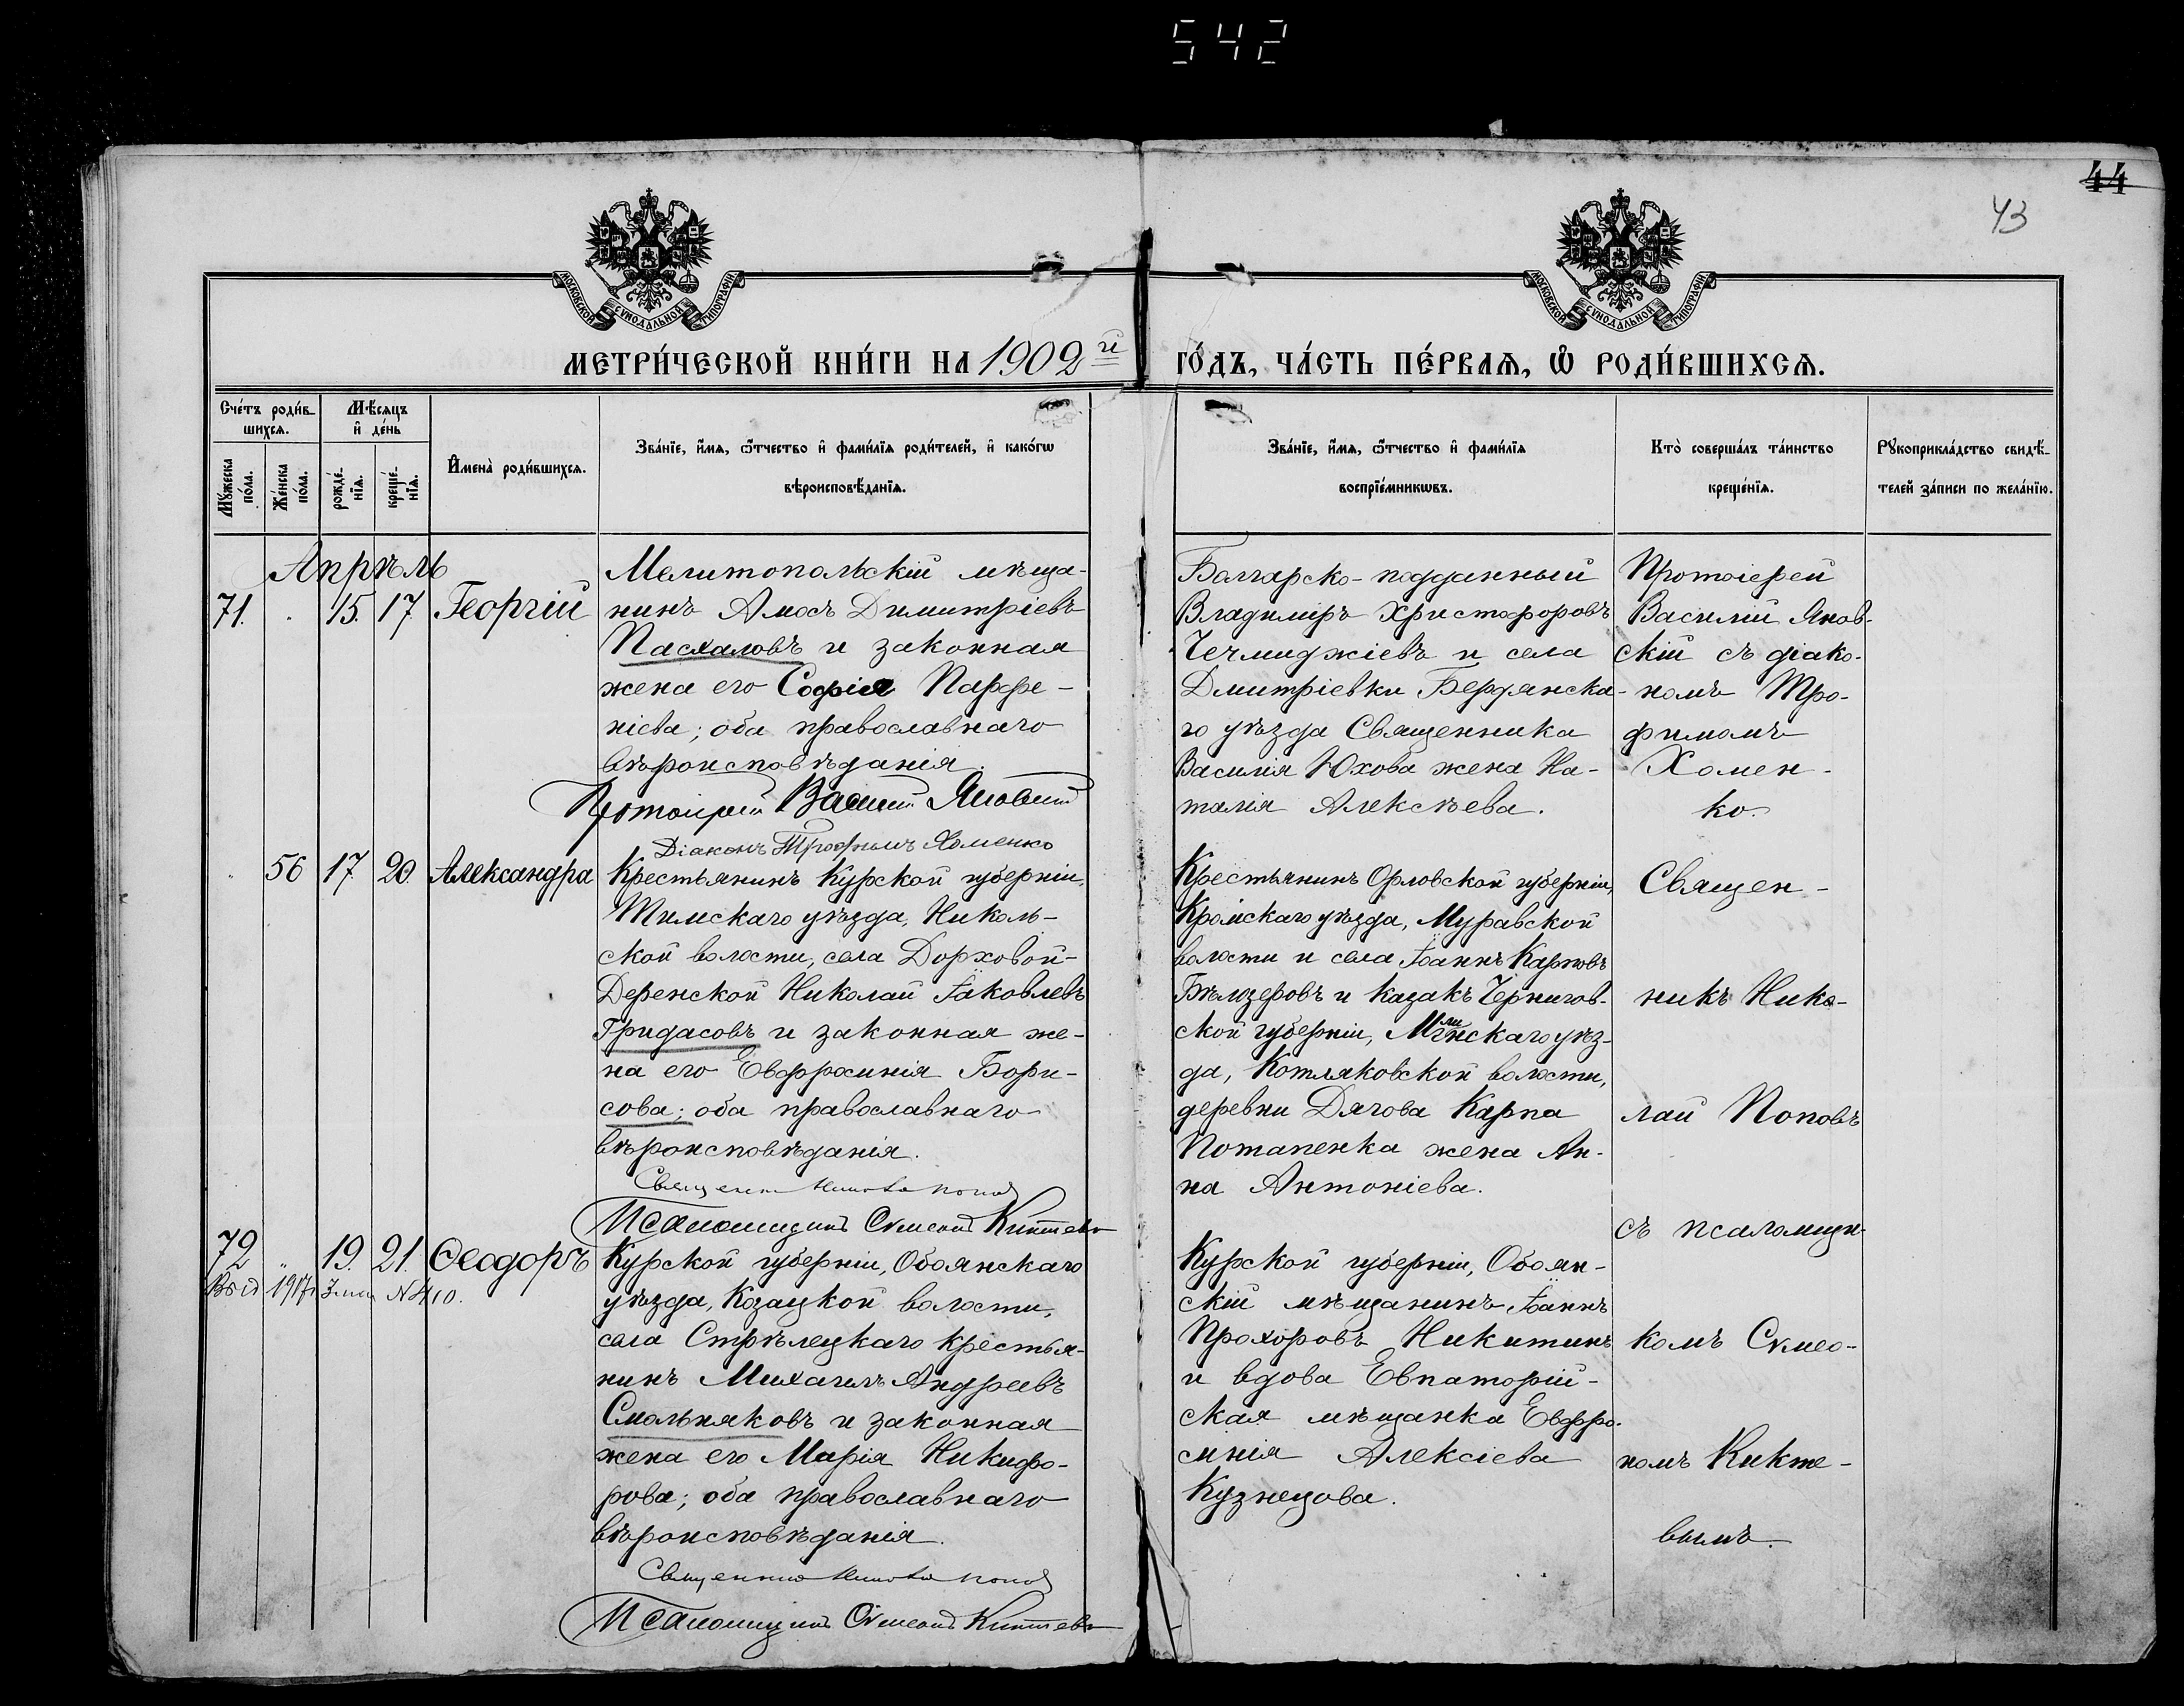 542
44
43
МОСКОВСКОЙ СѴНОДАЛЬНОЙ ТИПОГРАФІИ
МОСКОВСКОЙ СѴНОДАЛЬНОЙ ТИПОГРАФІИ
МЕТРИ́ЧЕСКОЙ КНИ́ГИ НА 1902й ГО́ДЪ, ЧА́СТЬ ПЕ́РВАѦ, Ѡ҆ РОДИ́ВШИХСѦ.
Сче́тъ роди́в-
шихсѧ.
Мꙋ́жеска
по́ла.
Же́нска
по́ла.
Мѣ́сѧцъ
и҆ де́нь
рожде́-
нїѧ.
креще́-
нїѧ.
И҆мена̀ роди́вшихсѧ.
Зва́нїе, и҆́мѧ, ѻ҆́тчество и҆ фами́лїѧ роди́телей, и҆ како́гѡ
вѣроисповѣ́данїѧ.
Зва́нїе, и҆́мѧ, ѻ҆́тчество и҆ фами́лїѧ
воспрїе́мникѡвъ.
Кто̀ соверша́лъ та́инство
креще́нїѧ.
Рꙋкоприкла́дство свидѣ́-
телей за́писи по жела́нїю.
Апрѣль
71. 15. 17. Георгій
Мелитопольскій мѣща-
нинъ Амосъ Димитріевъ
Пасхаловъ и законная
жена его Софія Парѳе-
ніева; оба православнаго
вѣроисповѣданія.
Протоіерей Василій Яновскій
Діаконъ Трофимъ Хоменко
Болгарско-подданный
Владиміръ Христофоровъ
Чечмиджіевъ и села
Дмитріевки Бердянска-
го уѣзда Священника
Василія Юхова жена На-
талія Алексѣева.
Протоіерей
Василій Янов-
скій съ діако-
номъ Тро-
фимомъ
Хомен-
ко.
56 17. 20. Александра
Крестьянинъ Курской губерніи,
Тимскаго уѣзда, Николь-
ской волости, села Дорховой-
Деренской Николай Іаковлевъ
Гридасовъ и законная же-
на его Евфросинія Бори-
сова; оба православнаго
вѣроисповѣданія.
Священникъ Николай Поповъ
Псаломщикъ Сѵмеонъ Киктевъ
Крестьянинъ Орловской губерніи,
Кромскаго уѣзда, Муравской
волости и села Іоаннъ Карповъ
Бѣлозеровъ и казакъ Чернигов-
ской губерніи, Мглинскаго уѣз-
да, Котляковской волости,
деревни Дягова Карпа
Потапенка жена Ан-
на Антоніева.
Священ-
никъ Нико-
лай Поповъ
съ псаломщи-
комъ Сѵмео-
номъ Кикте-
вымъ.
72 " 19. 21. Ѳеодоръ
1917 № 410.
Курской губерніи, Обоянскаго
уѣзда, Козацкой волости,
села Стрѣлецкаго крестья-
нинъ Михаилъ Андреевъ
Смольняковъ и законная
жена его Марія Никифо-
рова; оба православнаго
вѣроисповѣданія.
Священникъ Николай Поповъ
Псаломщикъ Сѵмеонъ Киктевъ
Курской губерніи, Обоян-
скій мѣщанинъ Іоаннъ
Прохоровъ Никитинъ
и вдова Евпаторій-
ская мѣщанка Евфро-
синія Алексіева
Кузнецова.